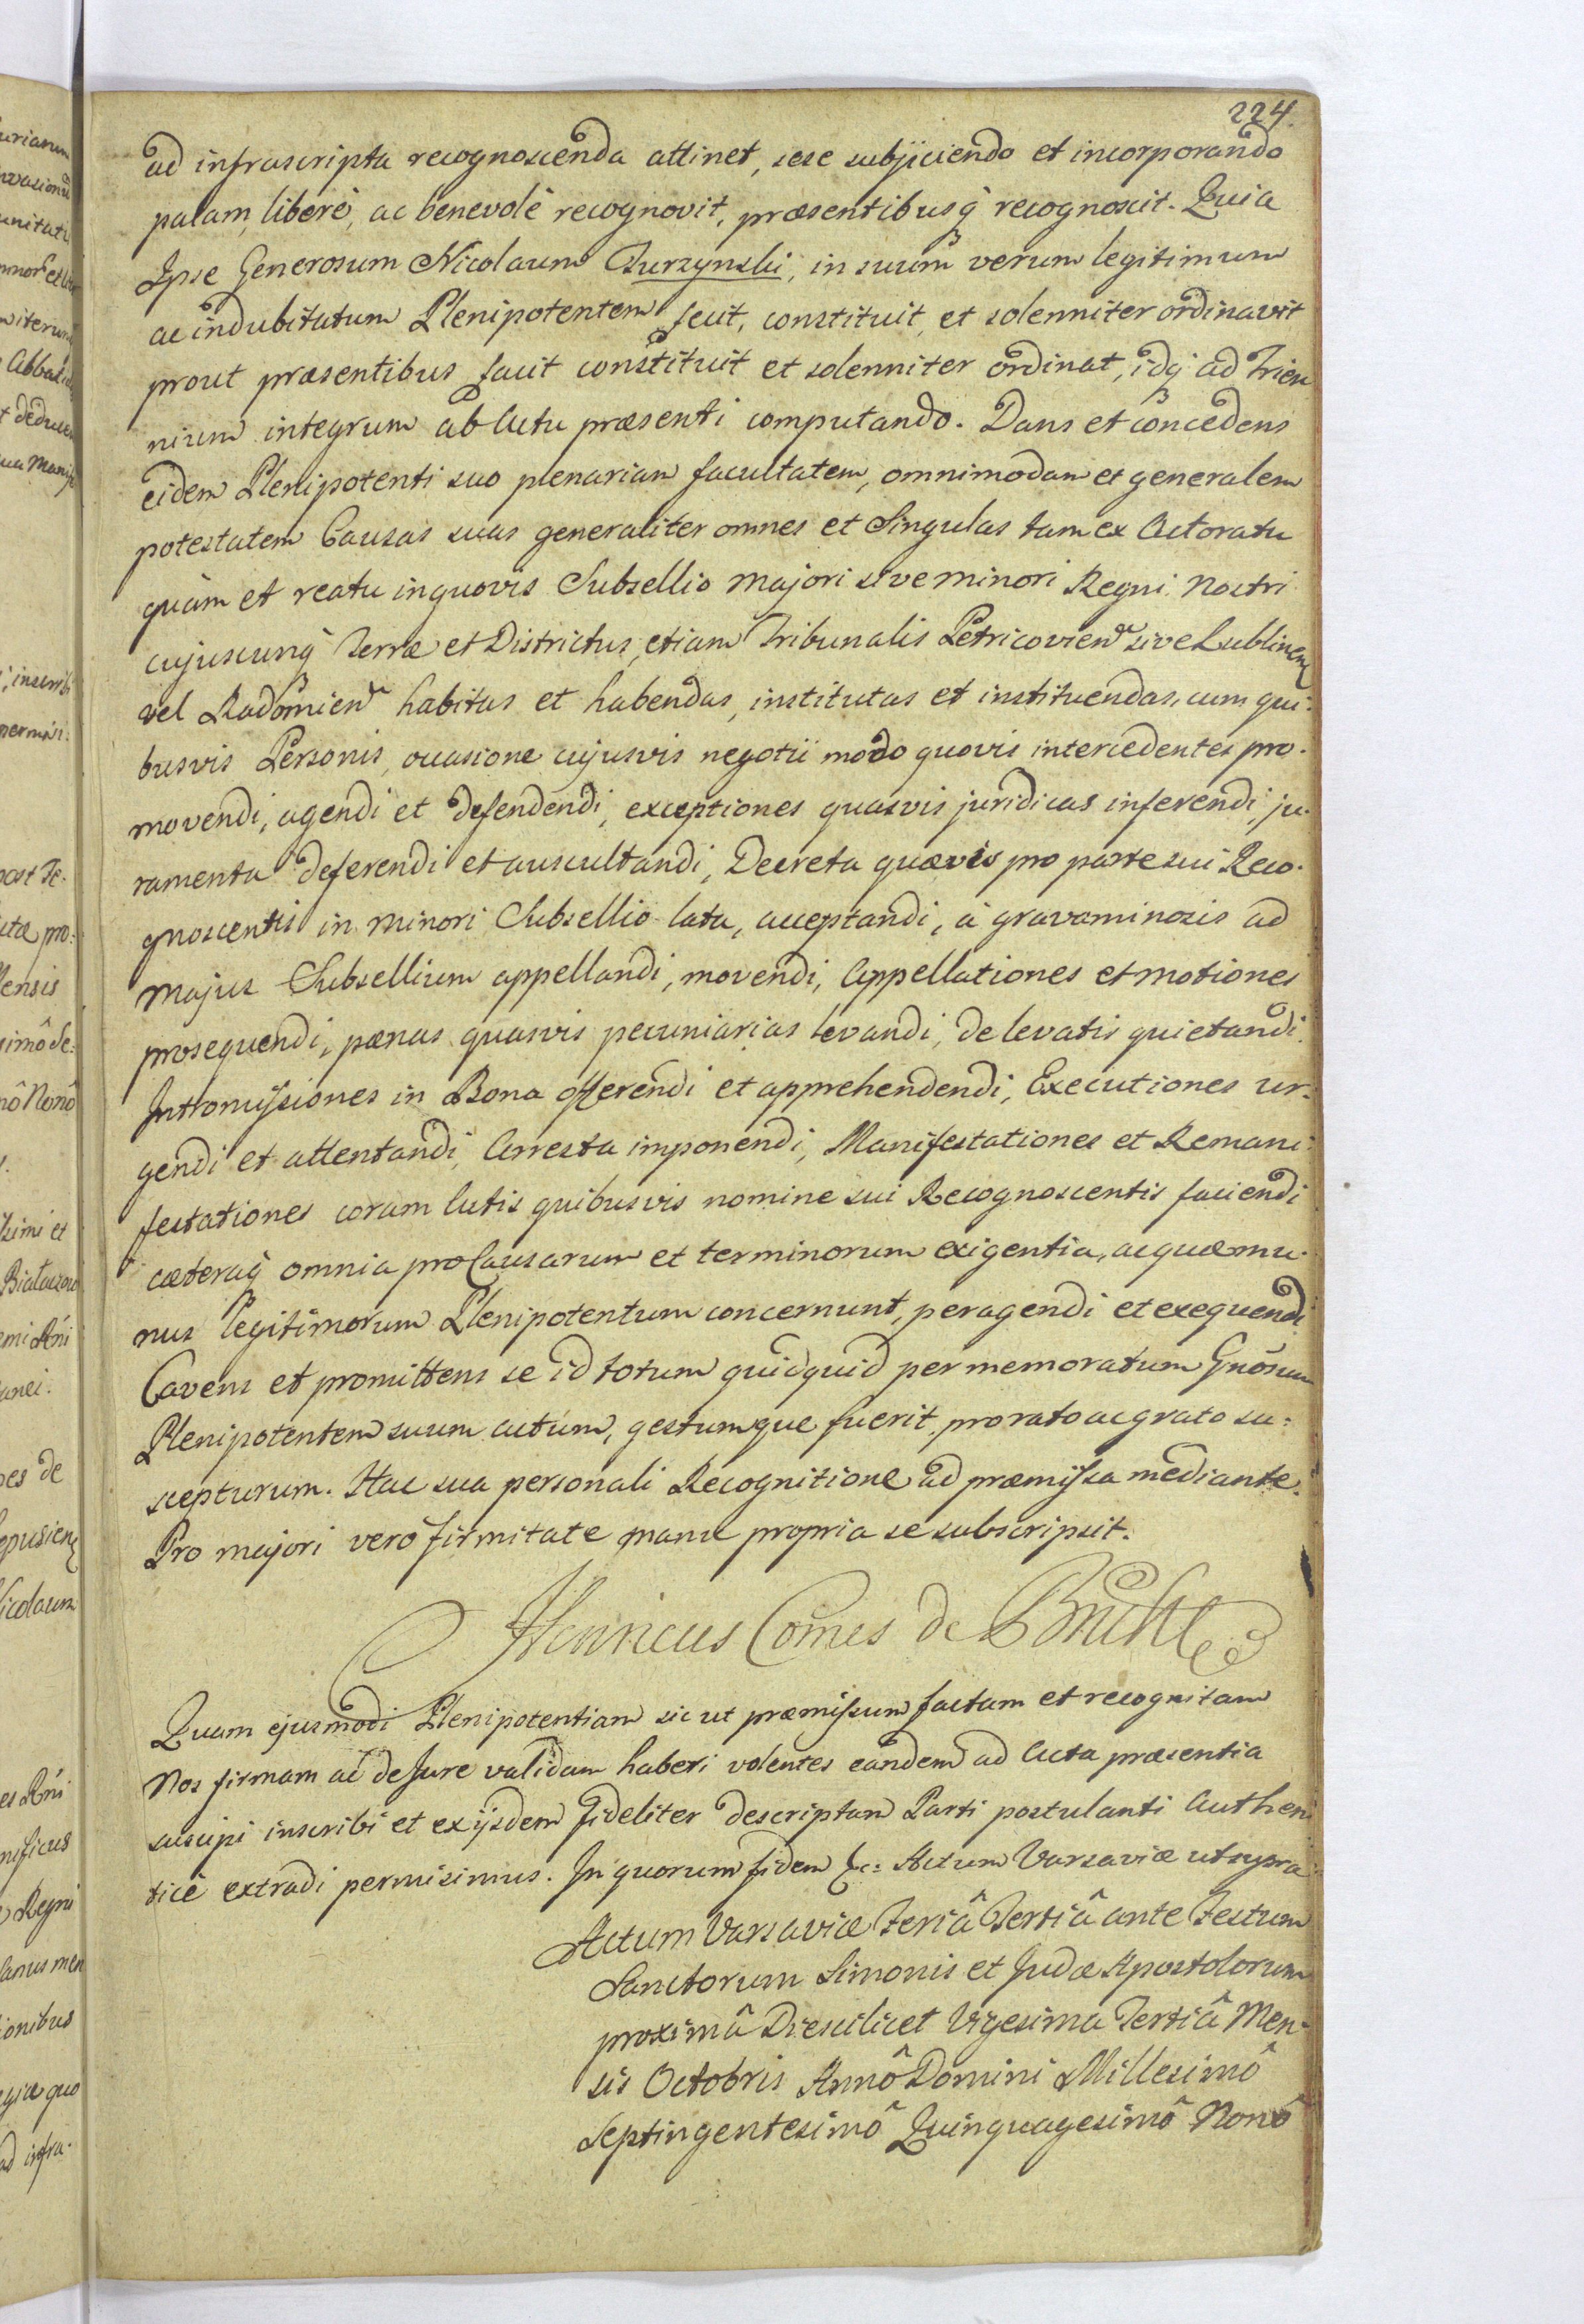 224.
ad infrascripta recognoscenda attinet, sese subjiciendo et incorporando
palam, liberè, ac benevolè recognovit, præsentibusq̃ recognoscit. Quia
Ipse Generosum Nicolaum Turzynski, in suum verum legitimum
ac indubitatum Plenipotentem fecit, constituit, et solenniter ordinavit
prout præsentibus facit constituit et solenniter ordinat, idq̃ ad Trien
nium integrum ab Actu præsenti computando. Dans et concedens
eidem Plenipotenti suo plenariam facultatem, omnimodam et generalem
potestatem Causas suas generaliter omnes et Singulas tam ex Actoratu
quàm et reatu in quovis Subsellio majori sive minori Regni Nostri
cujuscunq̃ Terræ et Districtus, etiam Tribunalis Petricovien̄ sive Lublinen̄
vel Radomien̄ habitas et habendas, institutas et instituendas, cum qui-
busvis Personis, occasione cujusvis negotii modo quovis intercedentes pro-
movendi, agendi et defendendi, exceptiones quasvis juridicas inferendi, ju-
ramenta deferendi et auscultandi, Decreta quævis pro parte sui Reco-
gnoscentis in minori Subsellio lata, acceptandi, à gravaminosis ad
majus Subsellium appellandi, movendi, Appellationes et motiones
prosequendi, pænas quasvis pecuniarias levandi, de levatis quietandi
Intromissiones in Bona offerendi et apprehendendi, Executiones ur-
gendi et attentandi, Arresta imponendi, Manifestationes et Remani-
festationes coram Actis quibusvis nomine sui Recognoscentis faciendi
cæteraq̃ omnia pro Causarum et terminorum exigentia, ac quæ mu-
nus legitimorum Plenipotentum concernunt, peragendi et exequendi
Cavens et promittens se id totum quidquid per memoratum Gnõsum
Plenipotentem suum actum, gestumque fuerit, pro rato ac grato su-
scepturum. Hac sua personali Recognitione ad præmissa mediante.
Pro majori verò firmitate manu propria se subscripsit.
Henricus Comes de Brühl
Quam ejusmodi Plenipotentiam sic ut præmissum factam et recognitam
Nos firmam ac de Jure validam haberi volentes eandem ad Acta præsentia
suscipi inscribi et ex ijsdem fideliter descriptam Parti postulanti Authen
ticè extradi permisimus. In quorum fidem &c: Actum Varsaviæ ut supra
Actum Varsaviæ Feriâ Tertiâ ante Festum
Sanctorum Simonis et Judæ Apostolorum
proximâ Die scilicet Vigesima Tertiâ Men-
sis Octobris Annô Domini Millesimô
Septingentesimô Quinquagesimô Nonô